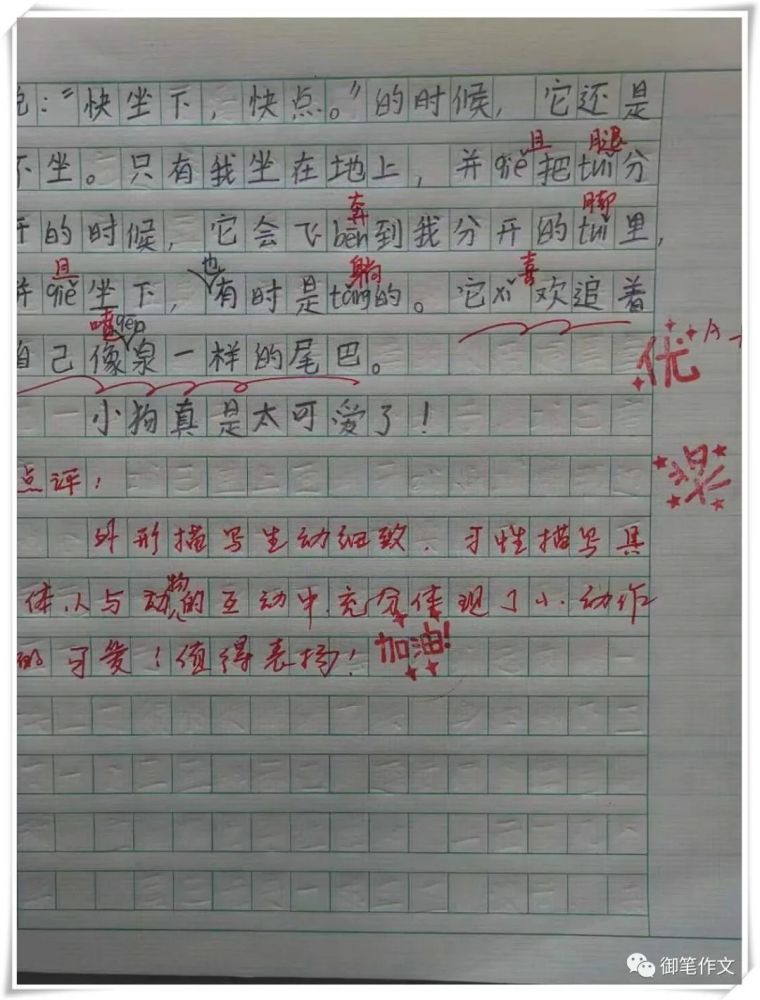 ：“快坐下，快点。”的时候，它还是
不坐。只有我坐在地上，并qiě把tuǐ分
且 腿
开的时候，它会飞bēn到我分开的tuǐ里，
奔 脚
并qiě坐下，也有时是tǎng的。它xǐ欢追着
且 躺 喜
自己像泉一样的尾巴。
喷 pēn
优 A+
小狗真是太可爱了！
点评：
棒
外形描写生动细致，个性描写具
体，人与动物的互动中充分体现了小动作
的可爱！值得表扬！加油！
御笔作文